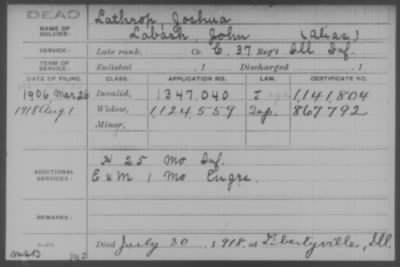 DEAD
NAME OF SOLDIER: Lathrop, Joshua
Labash, John (alias)
SERVICE: Late rank, Co. C, 37 Reg't Ill Inf.
TERM OF SERVICE: Enlisted , 1 Discharged , 1
DATE OF FILING. CLASS. APPLICATION NO. LAW. CERTIFICATE NO.
1906 Mar 26 Invalid, 1347,040 J 1,141,804
1918 Aug 1 Widow, 1,124,559 867792
Minor,
ADDITIONAL SERVICES: H 25 Mo Inf.
E & M 1 Mo Engrs.
REMARKS:
Died July 30, 1918, at Libertyville, Ill.